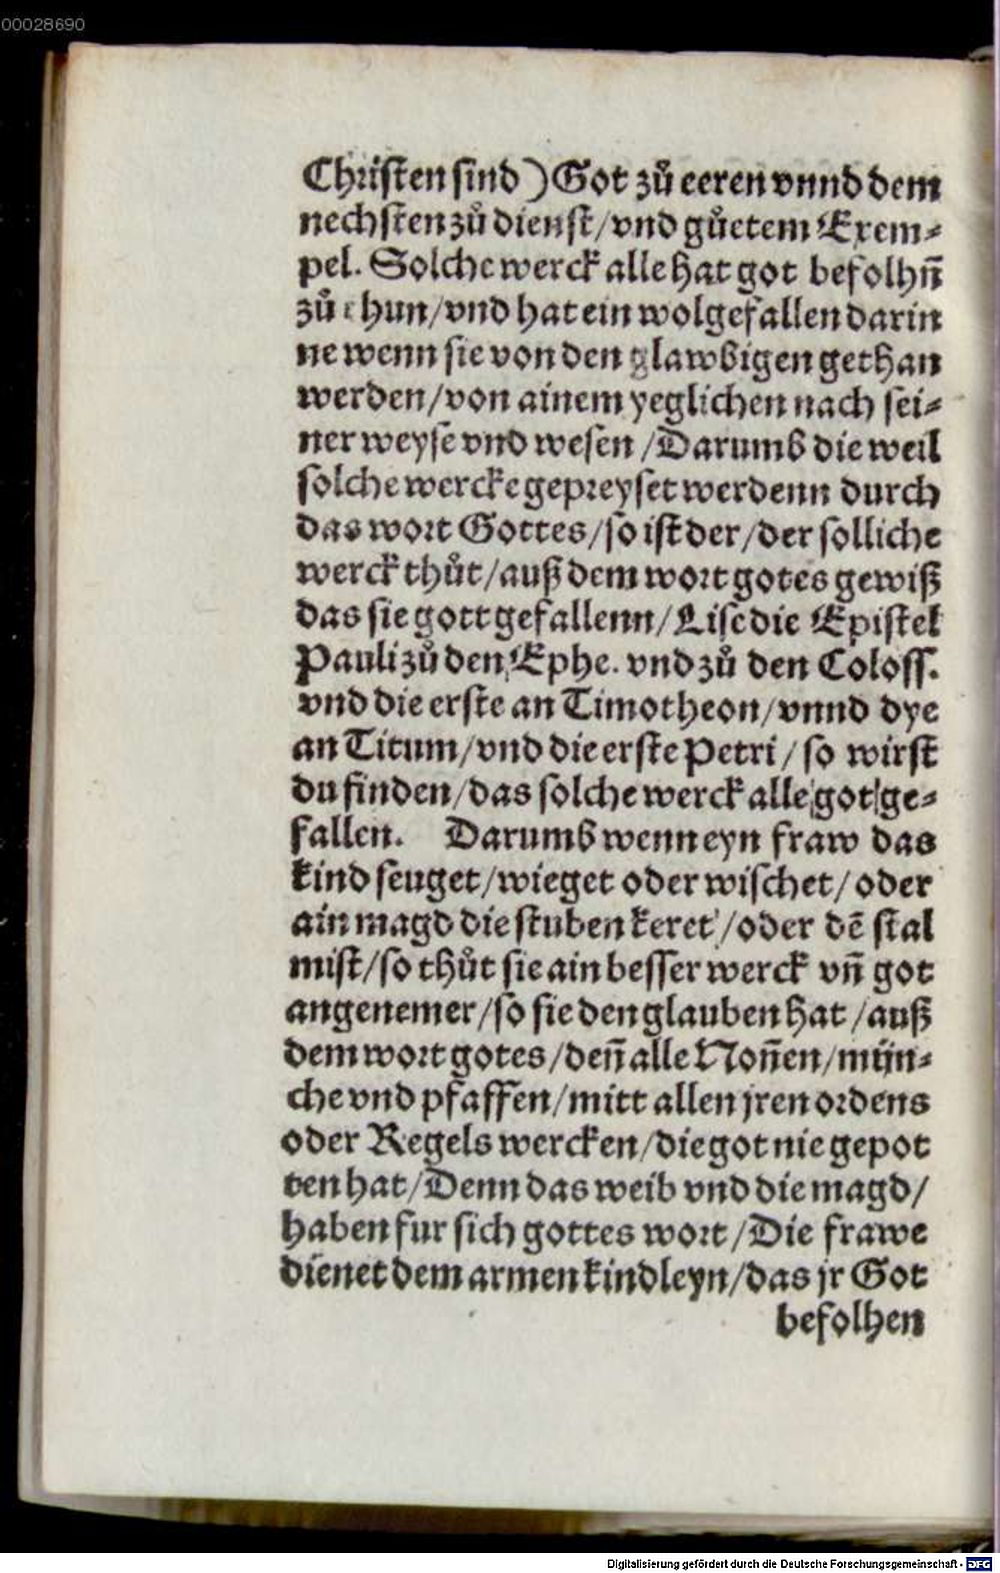 00028690
Christen sind) Got zů eeren vnnd dem
nechsten zů dienst/vnd gůetem Exem⸗
pel. Solche werck alle hat got befolhn̄
zů thun/vnd hat ein wolgefallen darin
ne wenn sie von den glawbigen gethan
werden/von ainem yeglichen nach sei⸗
ner weyse vnd wesen/Darumb die weil
solche wercke gepreyset werdenn durch
das wort Gottes/so ist der/der solliche
werck thůt/auß dem wort gotes gewiß
das sie gott gefallenn/Lise die Epistel
Pauli zů den Ephe. vnd zů den Coloss.
vnd die erste an Timotheon/vnnd dye
an Titum/vnd die erste Petri/so wirst
du finden/das solche werck alle got ge⸗
fallen. Darumb wenn eyn fraw das
kind seuget/wieget oder wischet/oder
ain magd die stuben keret/oder dē stal
mist/so thůt sie ain besser werck vn̄ got
angenemer/so sie den glauben hat/auß
dem wort gotes/den̄ alle Non̄en/mün⸗
che vnd pfaffen/mitt allen jren ordens
oder Regels wercken/die got nie gepot
ten hat/Denn das weib vnd die magd/
haben fur sich gottes wort/Die frawe
dienet dem armen kindleyn/das jr Got
befolhen
Digitalisierung gefördert durch die Deutsche Forschungsgemeinschaft - DFG